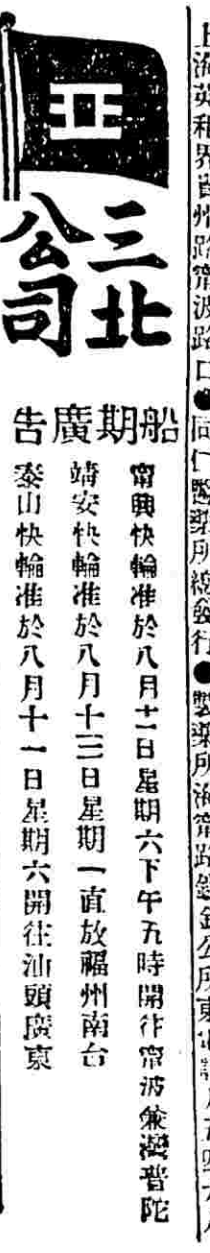 上海英租界貴州路甯波路口●同仁醫藥所總發行●製藥所海甯路
三北
公司
船期廣告
甯興快輪准於八月十一日星期六下午五時開往甯波兼灣普陀
靖安快輪准於八月十三日星期一直放福州南台
泰山快輪准於八月十一日星期六開往汕頭廣東